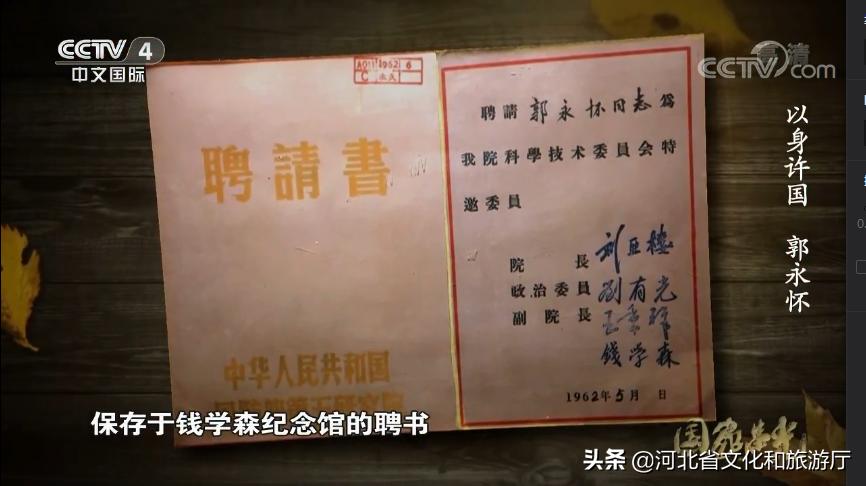 CCTV 4
中文国际
高清
CCTV.com
以身许国 郭永怀
A011 1962 6
C 永久
聘請書
中华人民共和国
国防部第五研究院
聘請郭永怀同志爲
我院科學技术委員会特
邀委員
院長 刘亚楼
政治委員 劉有光
副院長 王秉璋
錢学森
1962年5月 日
保存于钱学森纪念馆的聘书
国家荣光
头条 @河北省文化和旅游厅